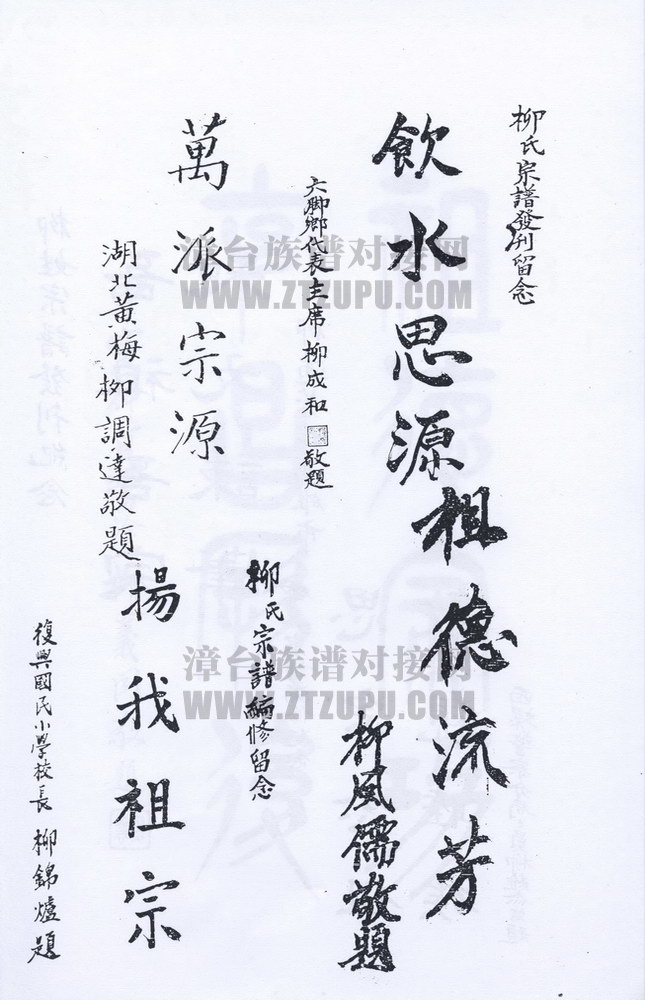 柳氏宗譜發刋留念
飲水思源
六脚鄉代表主席柳成和敬題
祖德流芳
柳風儒敬題
萬派宗源
湖北黃梅柳調達敬題
柳氏宗譜編修留念
揚我祖宗
復興國民小學校長柳錦爐題
漳台族谱对接网
WWW.ZTZUPU.COM
漳台族谱对接网
WWW.ZTZUPU.COM